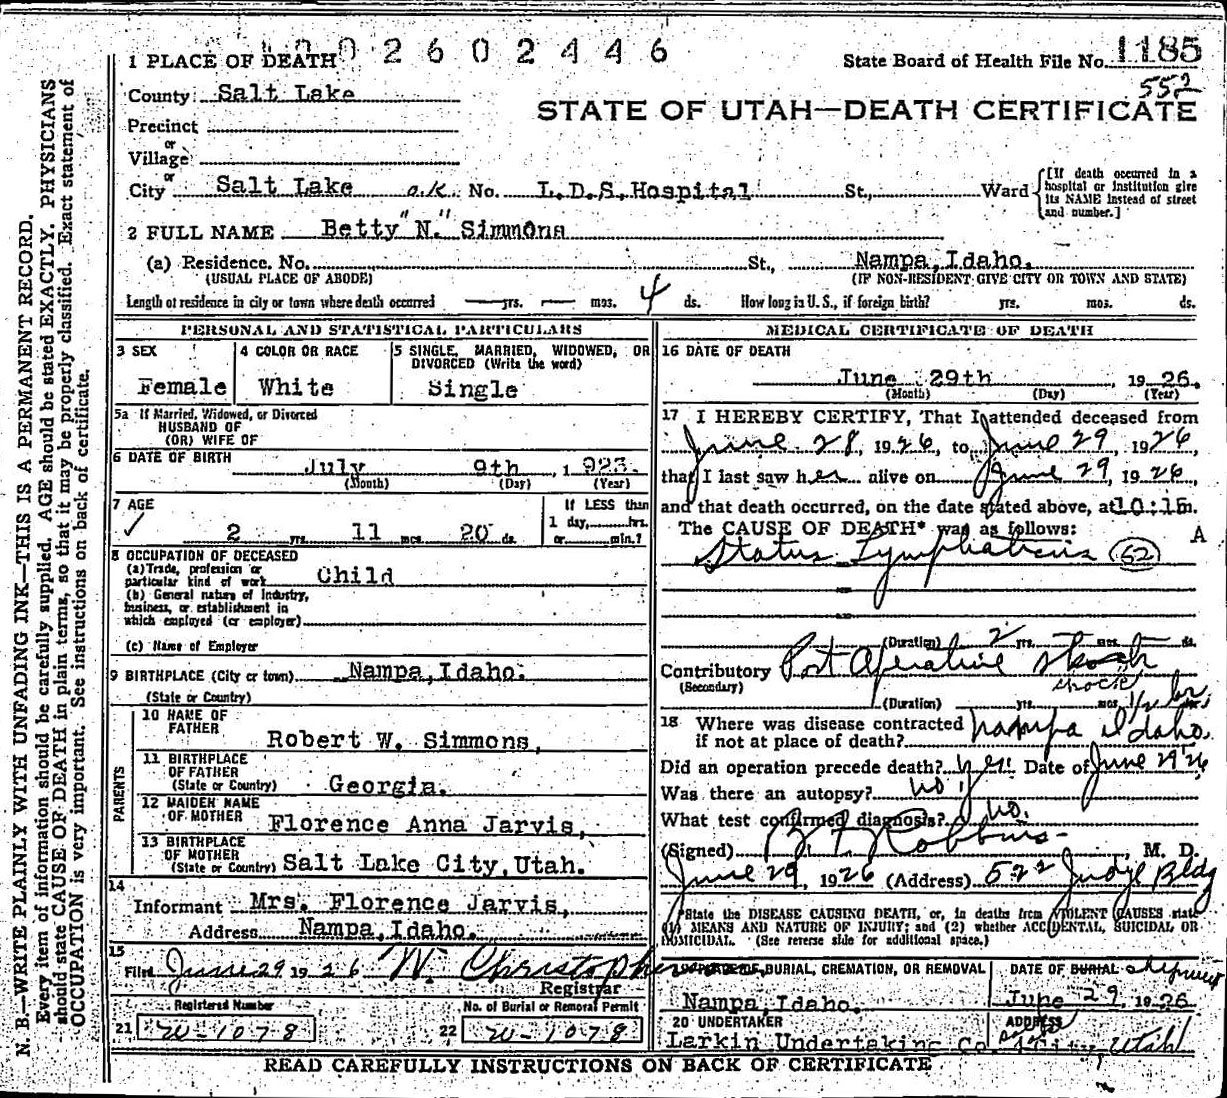 0 0 2 6 0 2 4 4 6
1 PLACE OF DEATH
State Board of Health File No. 1185
552
County Salt Lake
STATE OF UTAH—DEATH CERTIFICATE
Precinct
or
Village
or
City Salt Lake o.k. No. L.D.S.Hospital St., Ward
[If death occurred in a hospital or institution give its NAME instead of street and number.]
2 FULL NAME Betty "N." Simmons
(a) Residence. No. St., Nampa, Idaho.
(USUAL PLACE OF ABODE) (IF NON-RESIDENT GIVE CITY OR TOWN AND STATE)
Length of residence in city or town where death occurred — yrs. — mos. 4 ds. How long in U. S., if foreign birth? yrs. mos. ds.
PERSONAL AND STATISTICAL PARTICULARS
3 SEX
Female
4 COLOR OR RACE
White
5 SINGLE, MARRIED, WIDOWED, OR
DIVORCED (Write the word)
Single
5a If Married, Widowed, or Divorced
HUSBAND OF
(OR) WIFE OF
6 DATE OF BIRTH July 9th, 1923.
(Month) (Day) (Year)
7 AGE
✓ 2 yrs. 11 mos. 20 ds.
If LESS than
1 day, hrs.
or min.?
8 OCCUPATION OF DECEASED
(a) Trade, profession or
particular kind of work Child
(b) General nature of Industry,
business, or establishment in
which employed (or employer)
(c) Name of Employer
9 BIRTHPLACE (City or town) Nampa, Idaho.
(State or Country)
PARENTS
10 NAME OF
FATHER Robert W. Simmons,
11 BIRTHPLACE
OF FATHER
(State or Country) Georgia.
12 MAIDEN NAME
OF MOTHER Florence Anna Jarvis,
13 BIRTHPLACE
OF MOTHER
(State or Country) Salt Lake City, Utah.
14
Informant Mrs. Florence Jarvis,
Address Nampa, Idaho.
15
Filed June 29 1926 W. Christopherson
Registrar
Registered Number
21 W-1078
No. of Burial or Removal Permit
22 W-1078
MEDICAL CERTIFICATE OF DEATH
16 DATE OF DEATH
June 29th, 1926.
(Month) (Day) (Year)
17 I HEREBY CERTIFY, That I attended deceased from
June 28, 1926, to June 29 1926
that I last saw her alive on June 29, 1926,
and that death occurred, on the date stated above, at 10:15 m.
The CAUSE OF DEATH* was as follows: A
Status Lymphaticus (62)
(Duration) 2 yrs. — mos. — ds.
Contributory Post Operative shock
(Secondary) shock
(Duration) yrs. mos. 1/2 hr.
18 Where was disease contracted
if not at place of death? Nampa Idaho.
Did an operation precede death? yes. Date of June 29 '26
Was there an autopsy? no.
What test confirmed diagnosis? no.
(Signed) Robbins, M. D.
June 29, 1926 (Address) 522 Judge Bldg
*State the DISEASE CAUSING DEATH, or, in deaths from VIOLENT CAUSES state
(1) MEANS AND NATURE OF INJURY; and (2) whether ACCIDENTAL, SUICIDAL OR
HOMICIDAL. (See reverse side for additional space.)
19 PLACE OF BURIAL, CREMATION, OR REMOVAL
Nampa, Idaho.
DATE OF BURIAL shipment
June 29, 1926
20 UNDERTAKER
Larkin Undertaking Co.
ADDRESS
City, Utah
READ CAREFULLY INSTRUCTIONS ON BACK OF CERTIFICATE
N. B.—WRITE PLAINLY WITH UNFADING INK—THIS IS A PERMANENT RECORD.
Every item of information should be carefully supplied. AGE should be stated EXACTLY. PHYSICIANS
should state CAUSE OF DEATH in plain terms, so that it may be properly classified. Exact statement of
OCCUPATION is very important. See instructions on back of certificate.